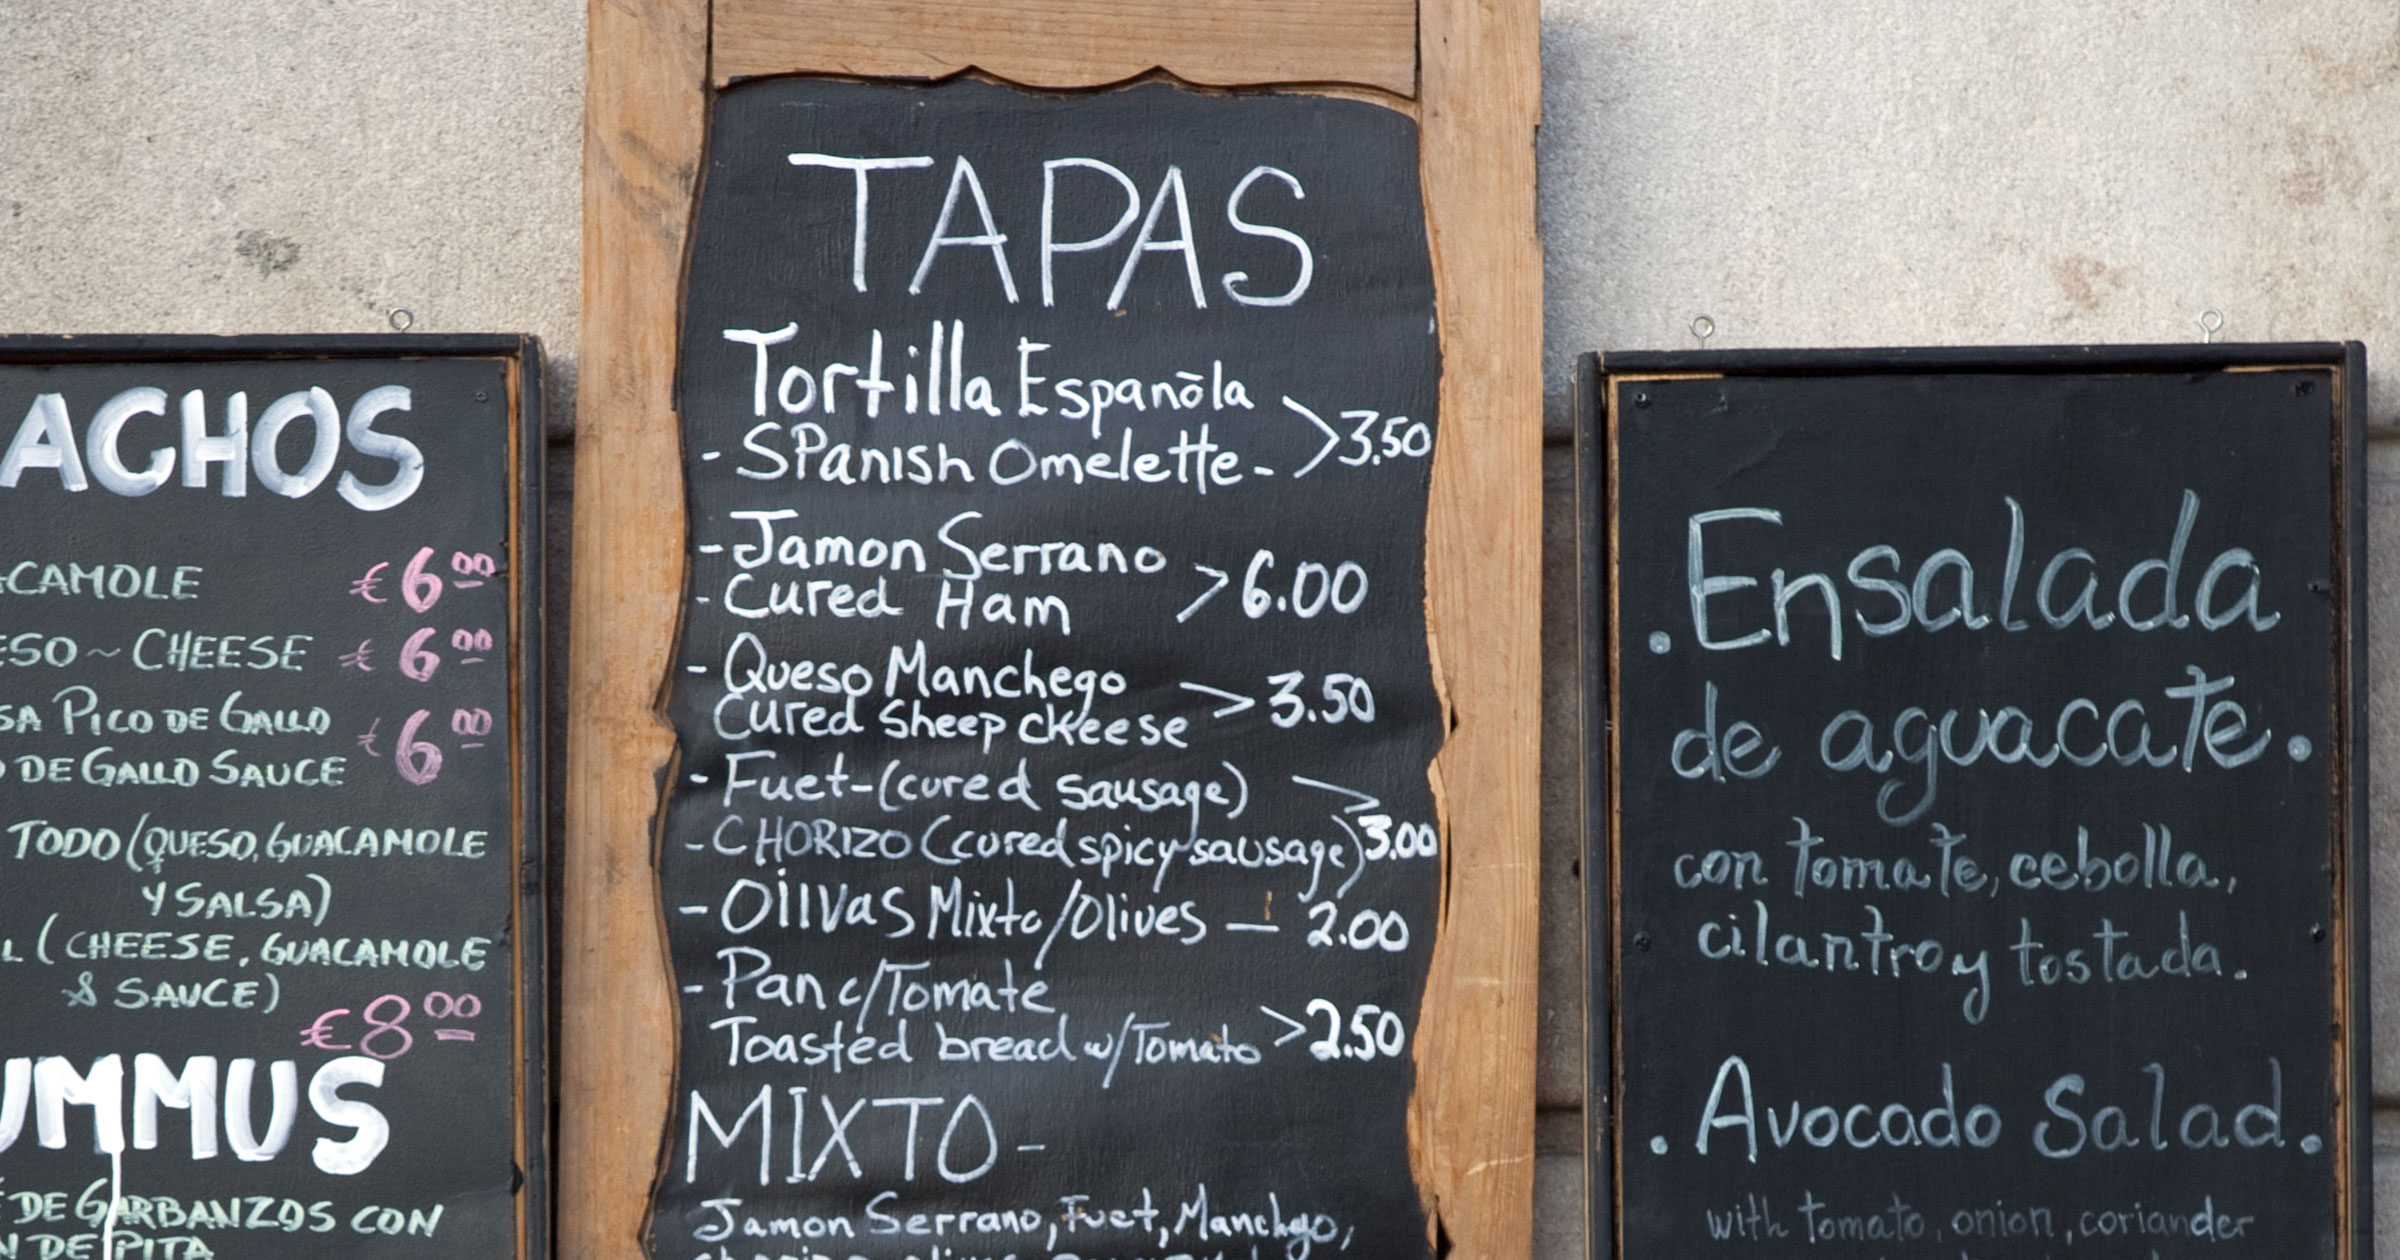 ACHOS
CAMOLE €6.00
ESO ~ CHEESE €6.00
SA PICO DE GALLO
DE GALLO SAUCE €6.00
TODO (QUESO, GUACAMOLE
Y SALSA)
L (CHEESE, GUACAMOLE
& SAUCE)
€8.00
UMMUS
DE GARBANZOS CON
N DE PITA
TAPAS
Tortilla Espanōla
- SPanish Omelette - >3.50
- Jamon Serrano
- Cured Ham >6.00
- Queso Manchego
Cured Sheep cheese > 3.50
- Fuet-(cured sausage)
- CHORIZO (cured spicy sausage) 3.00
- Oilvas Mixto/Olives — 2.00
- Pan c/Tomate
Toasted bread w/Tomato >2.50
MIXTO -
Jamon Serrano, Fuet, Manchego,
.Ensalada
de aguacate.
con tomate, cebolla,
cilantro y tostada.
.Avocado Salad.
with tomato, onion, coriander